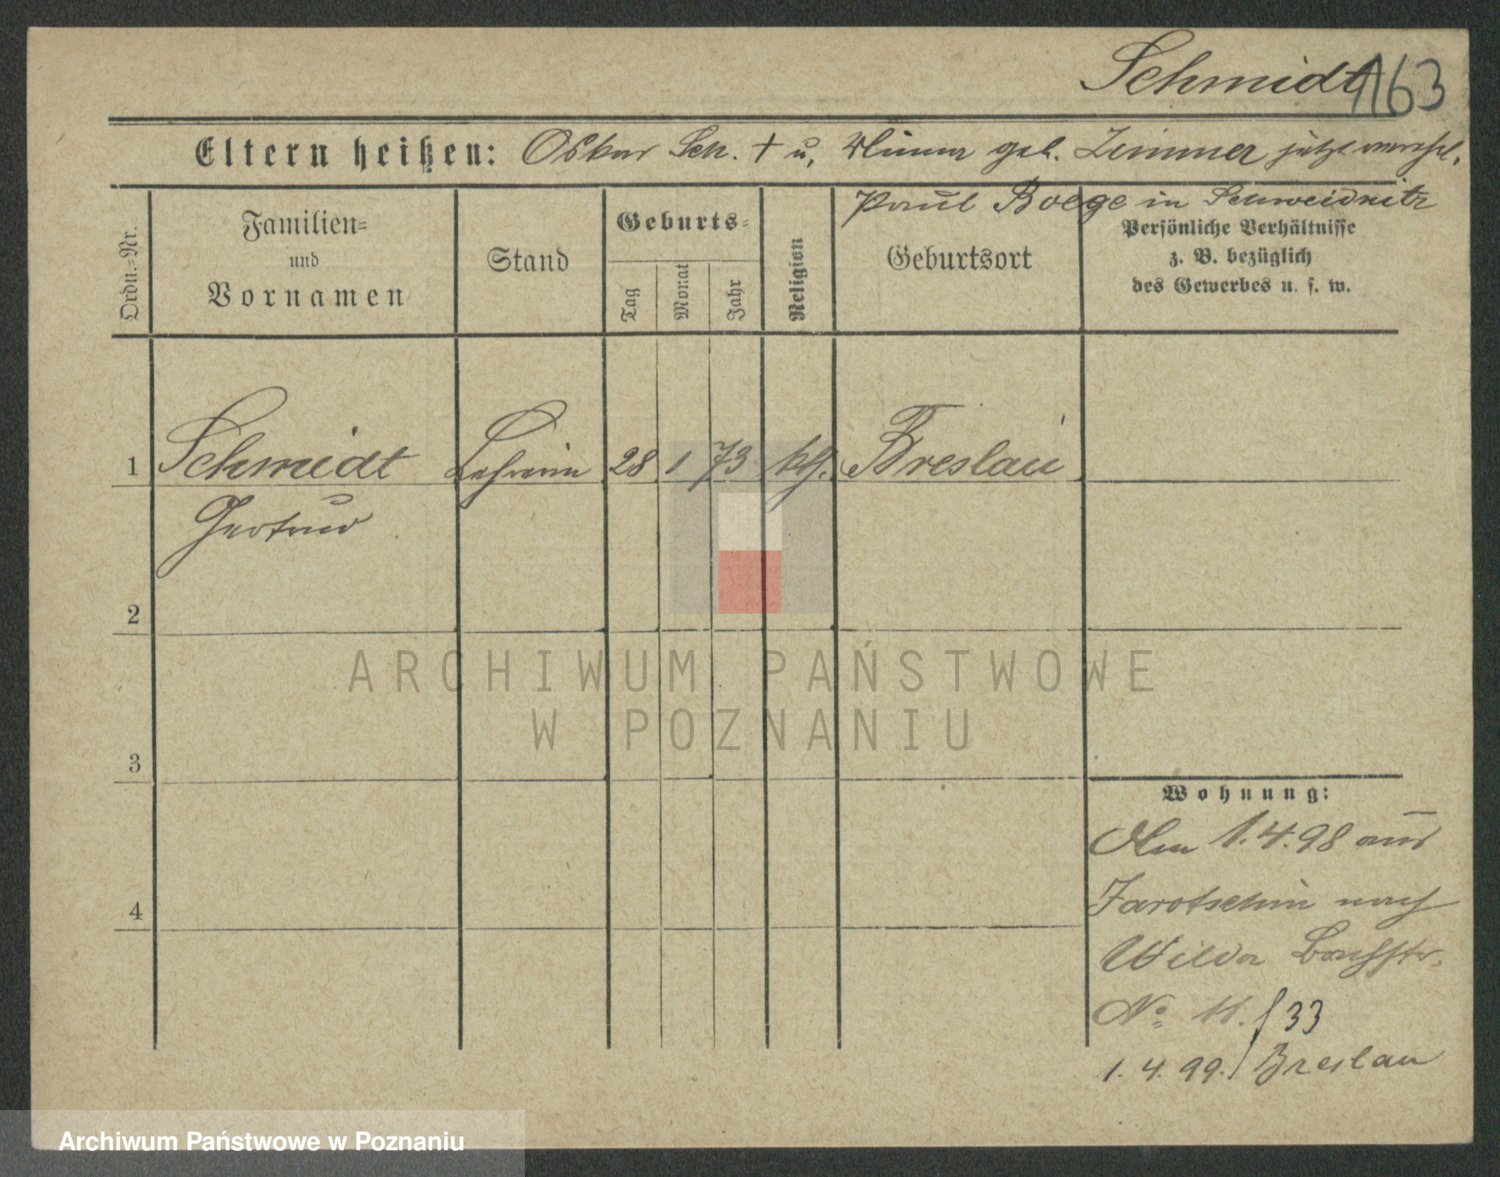 Schmidt 163
Eltern heißen: Oskar Sch. † u. geb. Zimmer jetzt verehel.
Paul Boege in Schweidnitz
Ordn.-Nr.
Familien-
und
Vornamen
Stand
Geburts-
Tag
Monat
Jahr
Religion
Geburtsort
Persönliche Verhältnisse
z. B. bezüglich
des Gewerbes u. s. w.
1 Schmidt Lehrerin 28 1 73 Breslau
Gertrud
2
3
4
Wohnung:
Am 1.4.98 aus
Jarotschin nach
Wilda
No 11. / 33
1. 4. 99. / Breslau
ARCHIWUM PAŃSTWOWE
W POZNANIU
Archiwum Państwowe w Poznaniu